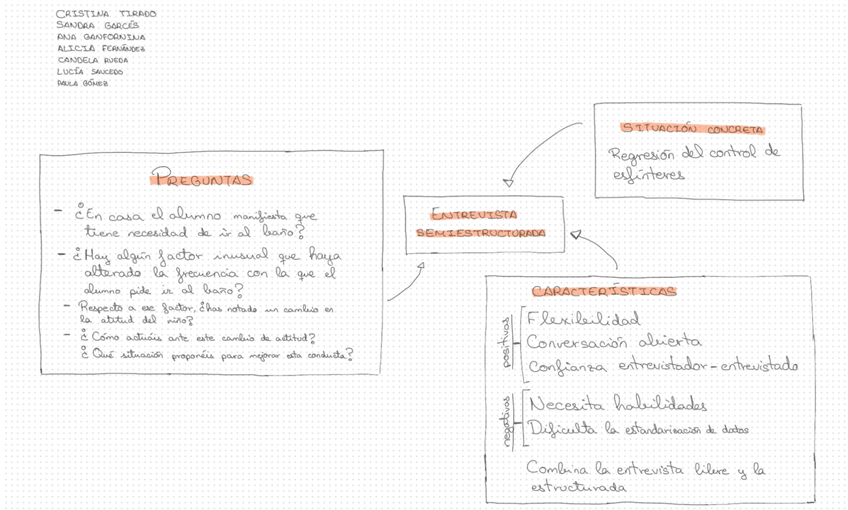 CRISTINA TIRADO
SANDRA GARCÉS
ANA GANFORNINA
ALICIA FERNÁNDEZ
CANDELA RUEDA
LUCÍA SAUCEDO
PAULA GÓMEZ
PREGUNTAS
- ¿En casa el alumno manifiesta que
tiene necesidad de ir al baño?
- ¿Hay algún factor inusual que haya
alterado la frecuencia con la que el
alumno pide ir al baño?
- Respecto a ese factor, ¿has notado un cambio en
la atitud del niño?
- ¿Cómo actuáis ante este cambio de actitud?
¿Qué situación proponéis para mejorar esta conducta?
ENTREVISTA
SEMIESTRUCTURADA
SITUACIÓN CONCRETA
Regresión del control de
esfínteres
CARACTERÍSTICAS
positivas
Flexibilidad
Conversación abierta
Confianza entrevistador-entrevistado
negativas
Necesita habilidades
Dificulta la estandarización de datos
Combina la entrevista libre y la
estructurada